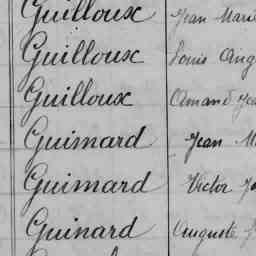 Guilloux Jean Marie
Guilloux Louis Aug
Guilloux Amand Jea
Guimard Jean M
Guimard Victor
Guinard Auguste